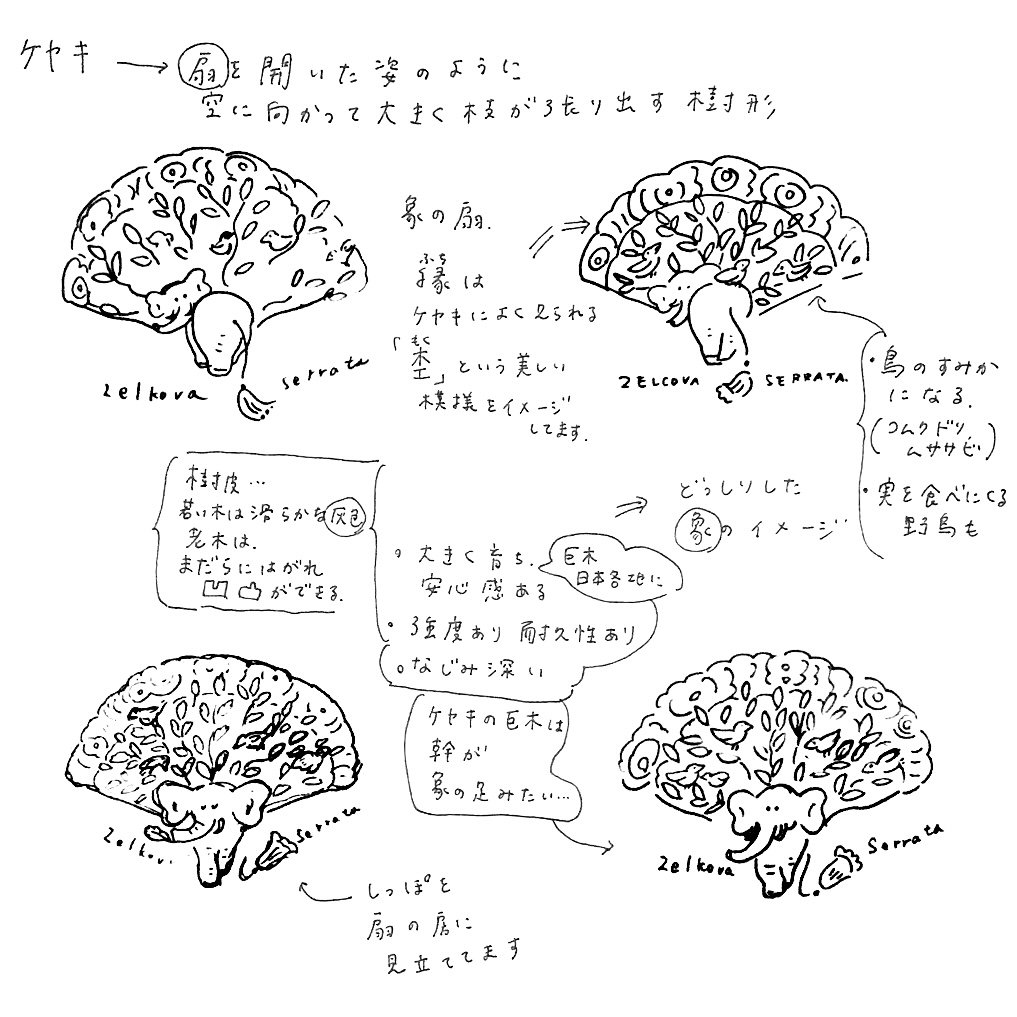 ケヤキ → 扇を開いた姿のように
空に向かって大きく枝が張り出す樹形
象の扇.
ふち
縁は
ケヤキによく見られる
もく
「杢」という美しい
模様をイメージ
してます.
zelkova
serrata
ZELCOVA
SERRATA.
・鳥のすみか
になる.
(コムクドリ,
ムササビ)
・実を食べにくる
野鳥も
樹皮…
若い木は滑らかな灰色
老木は.
まだらにはがれ
凹凸ができる.
どっしりした
象のイメージ
○大きく育ち.
安心感ある
巨木
日本各地に
・強度あり 耐久性あり
○なじみ深い
ケヤキの巨木は
幹が
象の足みたい…
zelkov.
serrata
zelkova
serrata
しっぽを
扇の房に
見立ててます